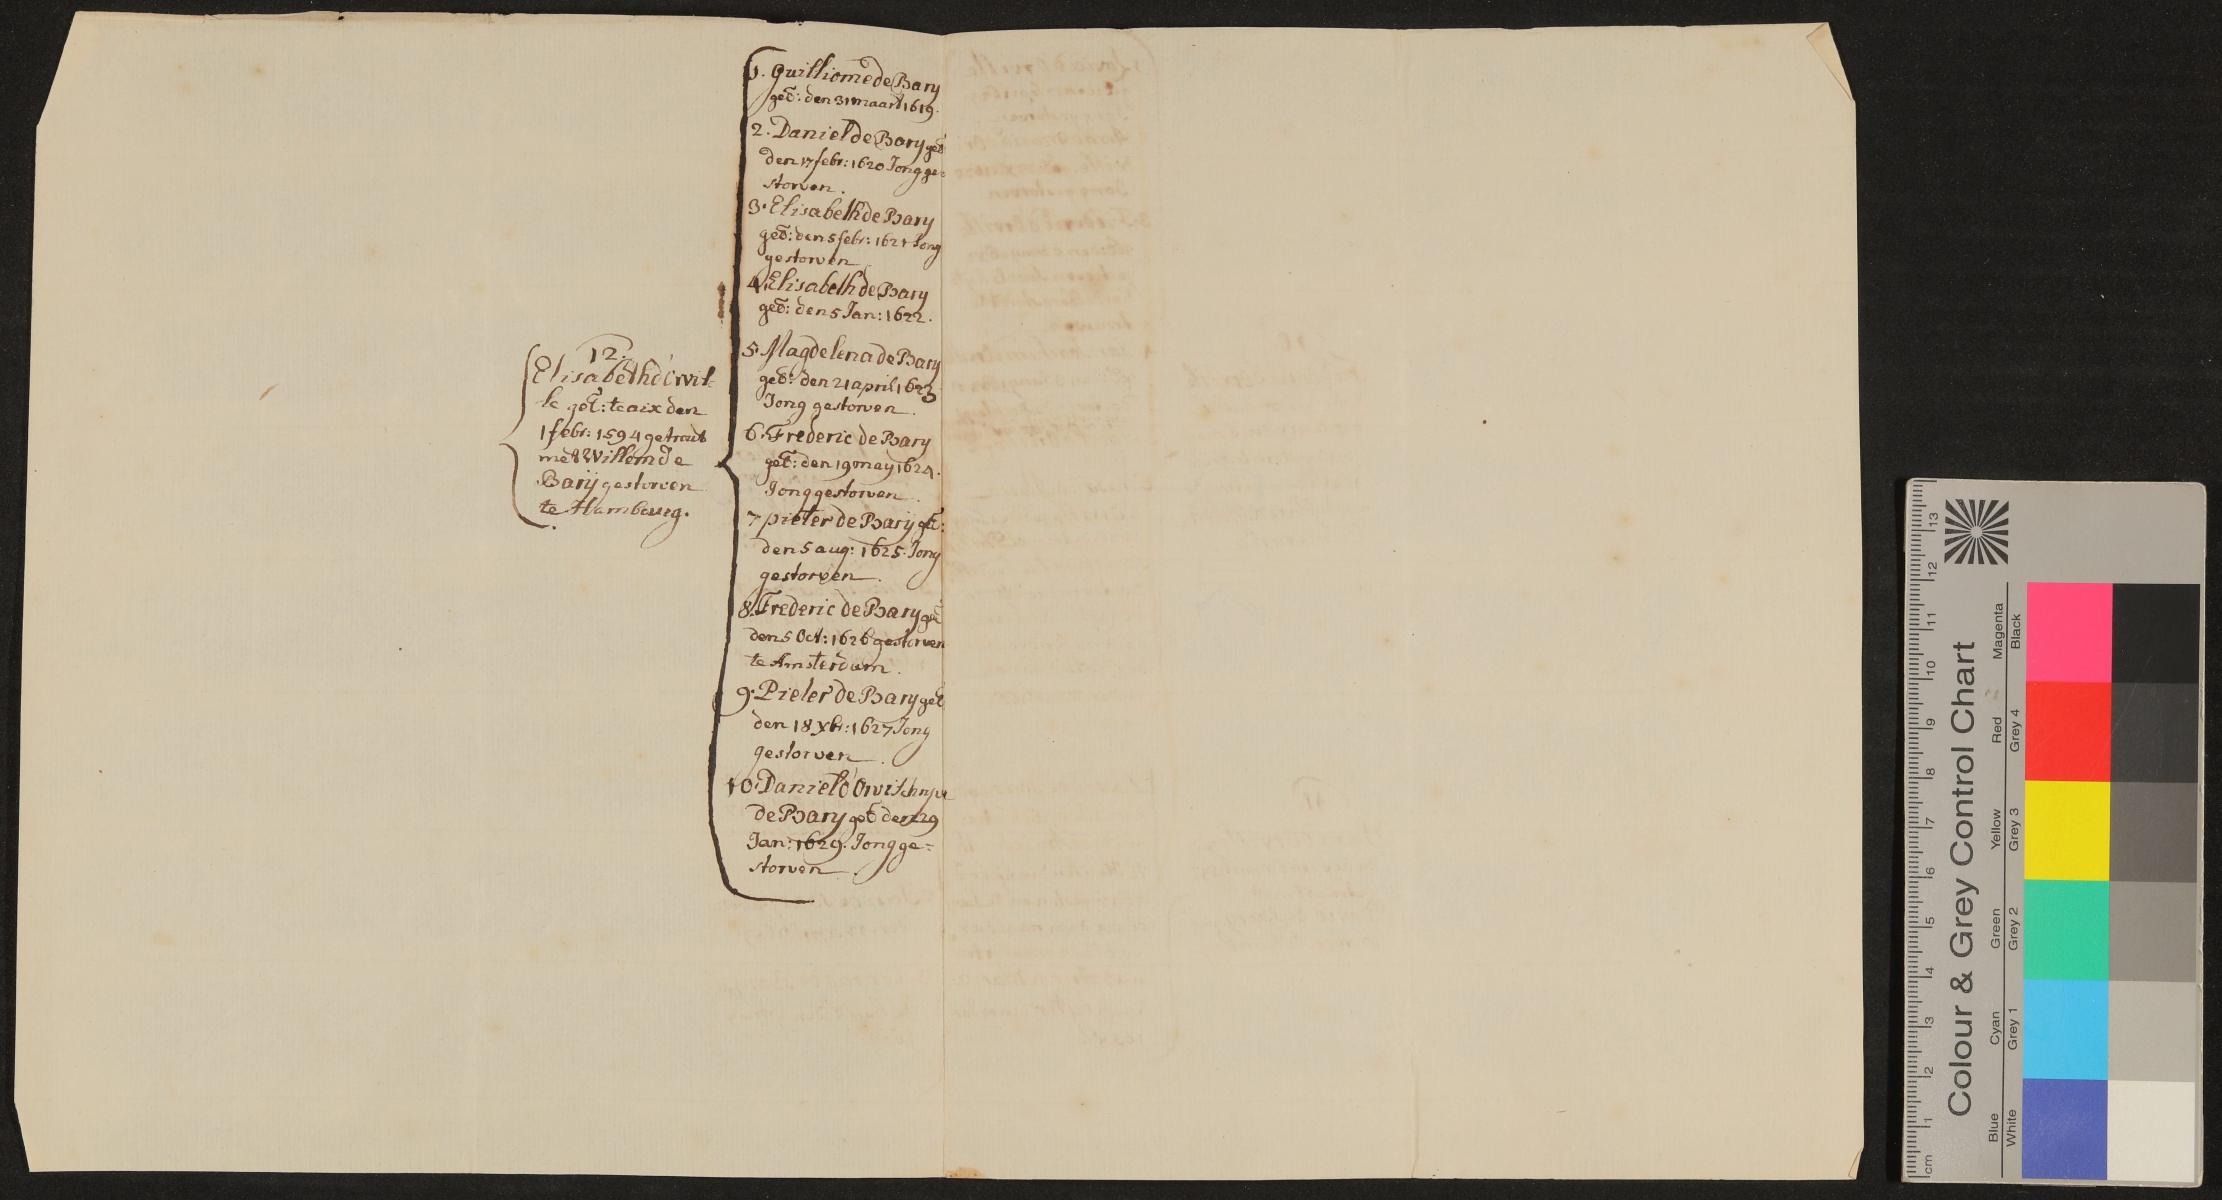 12.
Elisabeth d'orvil-
le geb: te aix den
1 febr: 1594 getraut
met Willem de
Barij gestorven
te Hambourg.
1. Guilliome de Bary
geb: den 31 maart 1619.
2. Daniel de Bary geb
den 17 febr: 1620 Jong ge=
storven.
3. Elisabeth de Bary
geb: den 5 febr: 1621 Jong
gestorven
4. Elisabeth de Bary
geb: den 5 Jan: 1622.
5. Magdelena de Bary
geb: den 21 april 1623
Jong gestorven.
6. Frederic de Bary
geb: den 19 may 1624.
Jong gestorven.
7 pieter de Barij geb:
den 5 aug: 1625. Jong
gestorven.
8. Frederic de Bary geb
den 5 Oct: 1626 gestorven
te Amsterdam.
9. Pieter de Bary geb
den 18 xbr: 1627 Jong
gestorven.
10. Daniel
de Bary geb den 29
Jan: 1629. Jong ge=
storven.
Colour & Grey Control Chart
Blue Cyan Green Yellow Red Magenta
White Grey 1 Grey 2 Grey 3 Grey 4 Black
cm 1 2 3 4 5 6 7 8 9 10 11 12 13